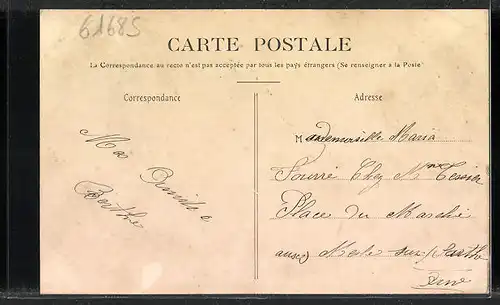 61685
CARTE POSTALE
La Correspondance au recto n'est pas acceptée par tous les pays étrangers (Se renseigner à la Poste)
Correspondance
Adresse
Mes
Amitiés
Berthe
Mademoiselle Maria
Fourré Chez Mme
Place du Marché
Mesle sur Sarthe
Orne